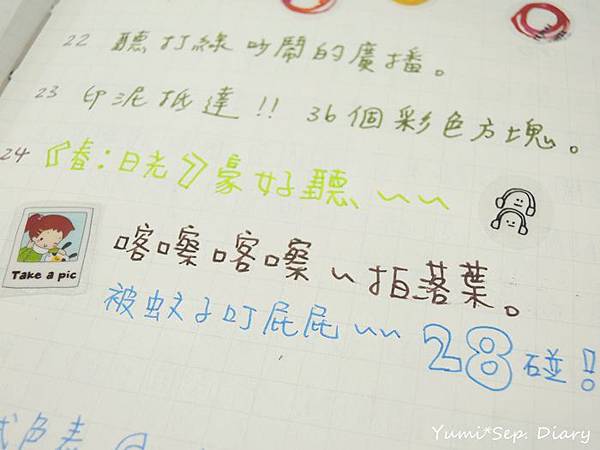 22 聽打綠吵鬧的廣播。
23 印泥抵達!! 36個彩色方塊。
24 《春:日光》豪好聽~~
Take a pic
喀嚓喀嚓~拍落葉。
被蚊子叮屁屁~~ 28碰!
式色表
Yumi*Sep. Diary